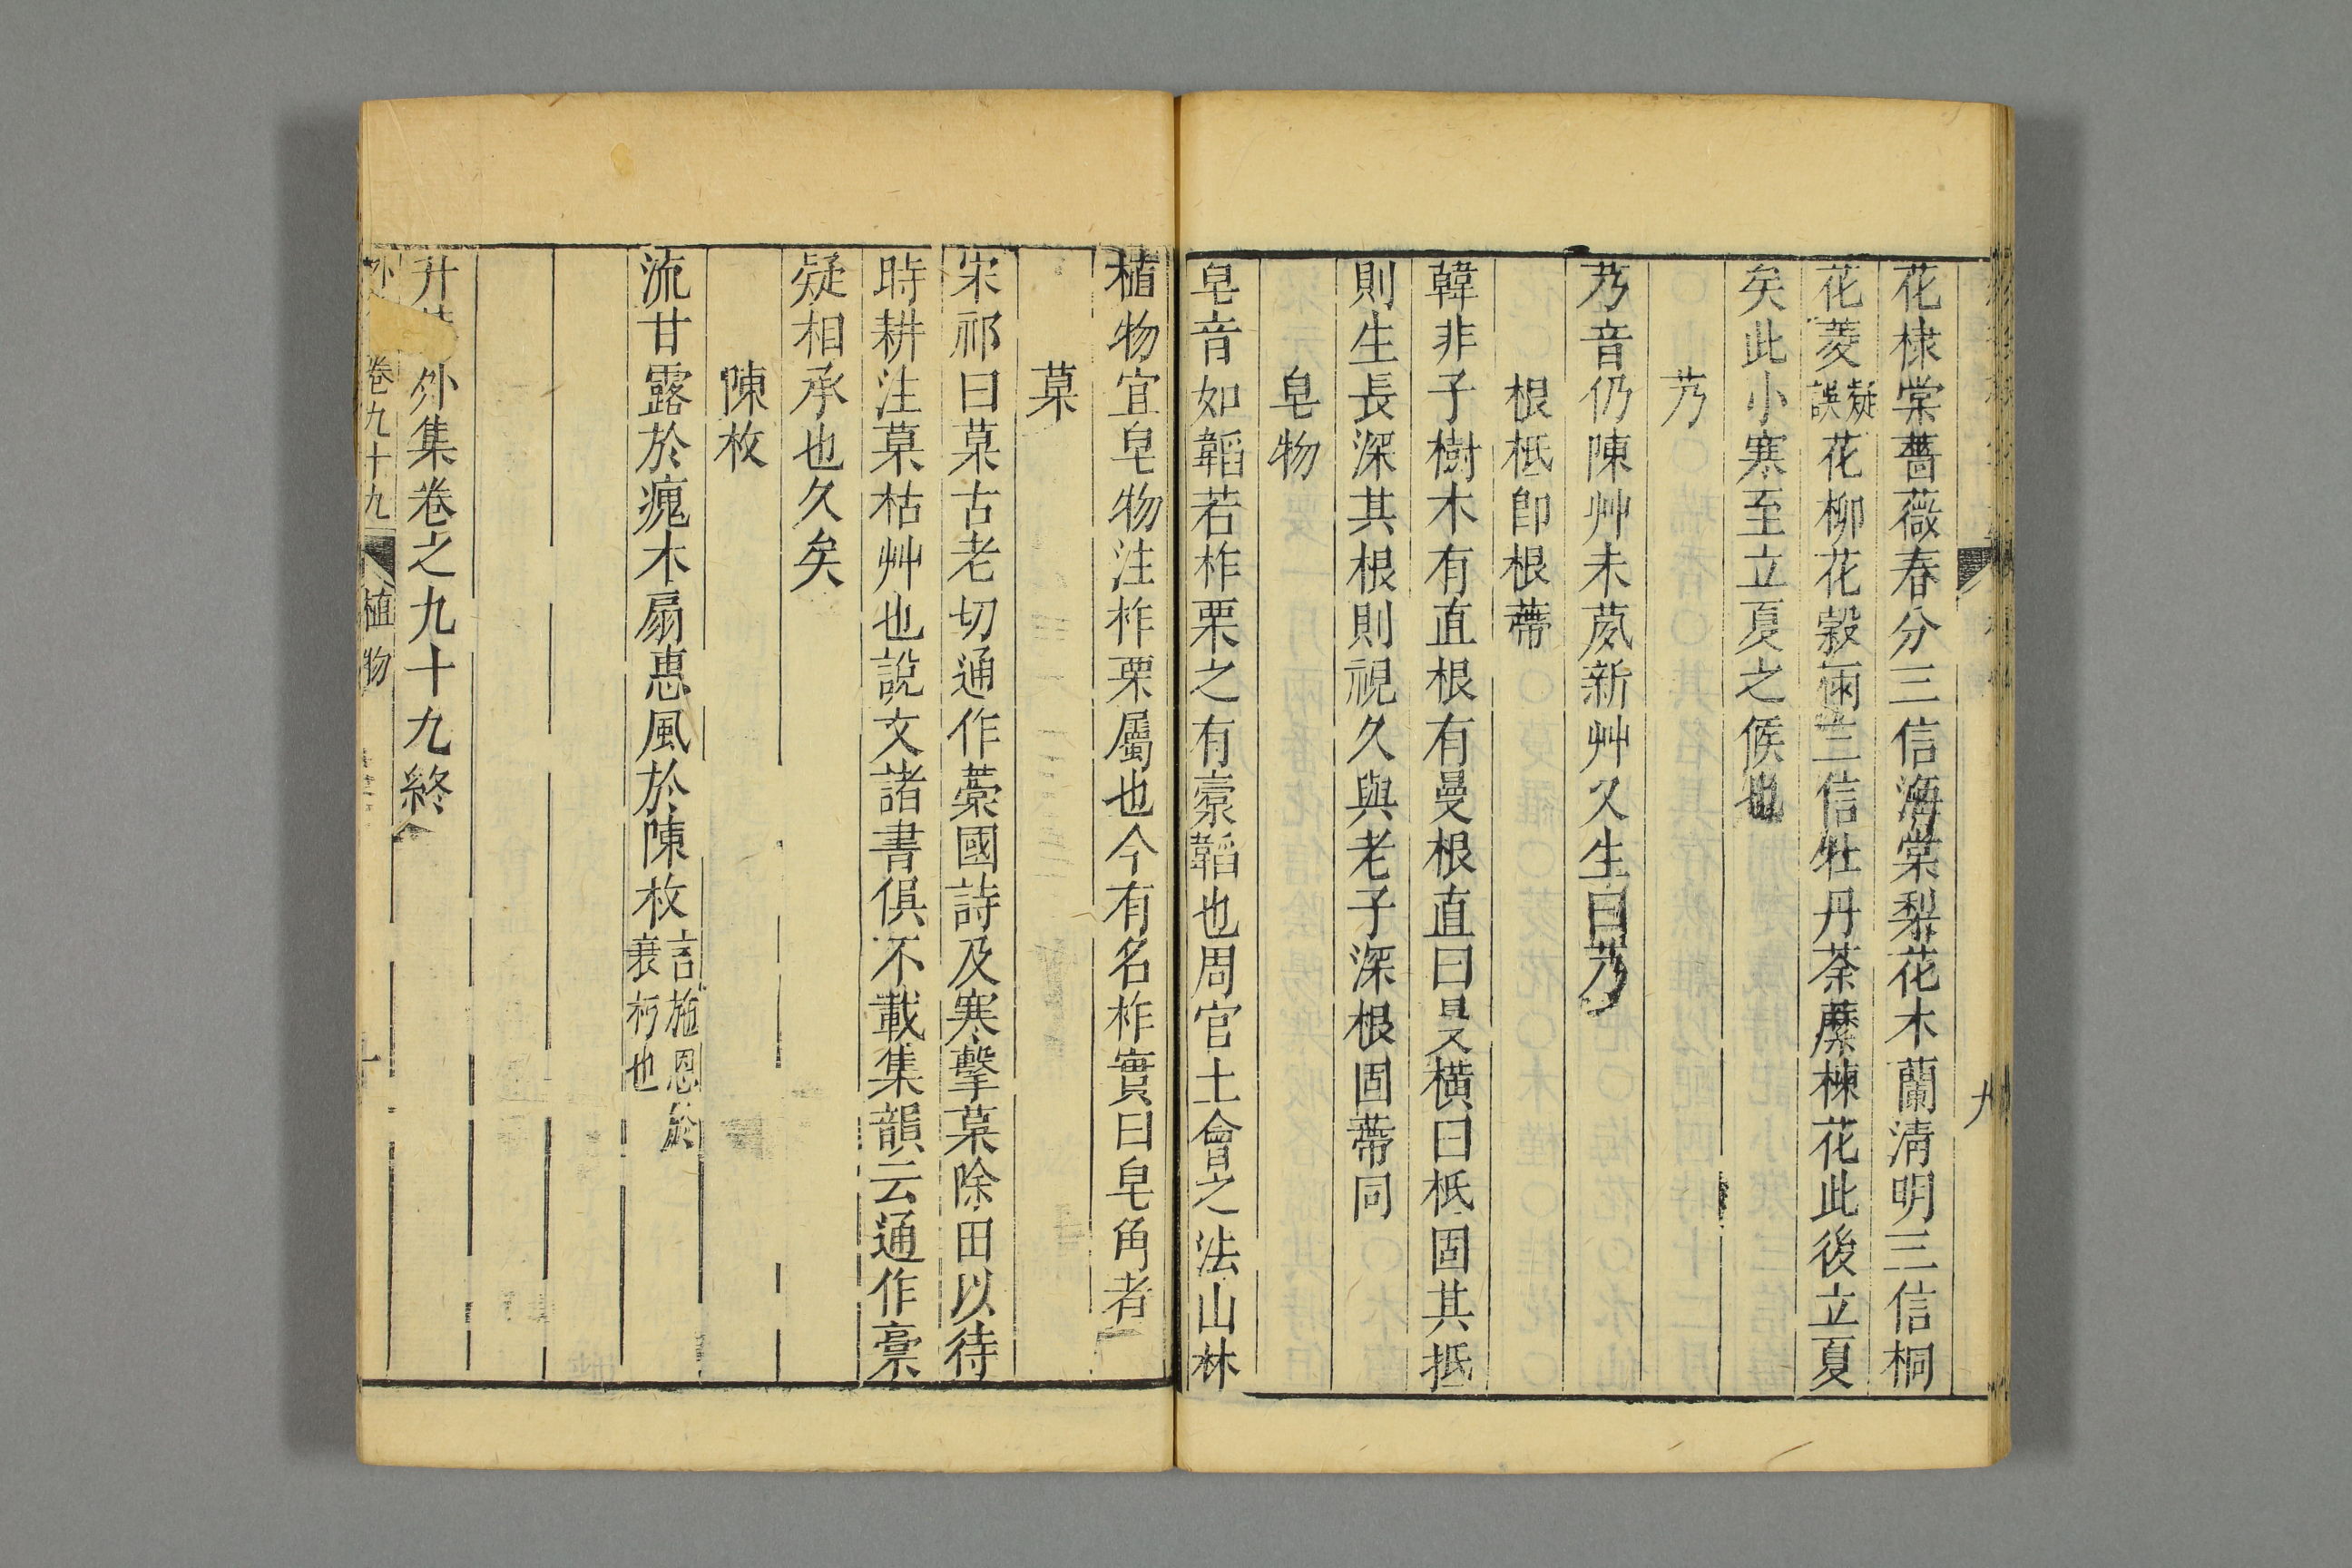 花棣棠薔薇春分三信海棠梨花木蘭清明三信桐
花菱疑誤花柳花穀雨三信牡丹荼蘼楝花此後立夏
矣此小寒至立夏之候也
艿
艿音仍陳艸未荿新艸又生曰艿
根柢卽根蔕
韓非子樹木有直根有曼根直曰根橫曰柢固其抵
則生長深其根則視久與老子深根固蔕同
皂物
皂音如韜若柞栗之有橐韜也周官土會之法山林
植物宜皂物注柞栗屬也今有名柞實曰皂角者
䒵
宋祁曰䒵古老切通作藁國詩及寒擊䒵除田以待
時耕注䒵枯艸也說文諸書俱不載集韻云通作稾
疑相承也久矣
陳枚
流甘露於瘣木扇惠風於陳枚言施恩於衰朽也
升外集卷之九十九終
卷九十九 植物